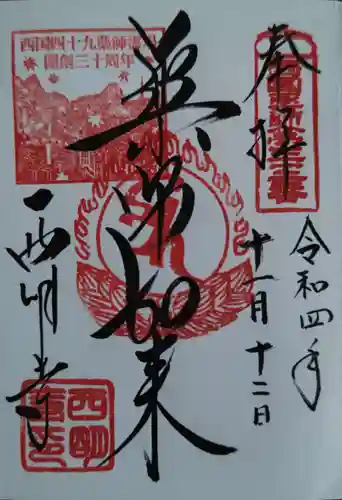 奉拝
令和四年
十一月十二日
薬師如来
西明寺
西国四十九薬師霊場
開創三十周年
西明
寺印